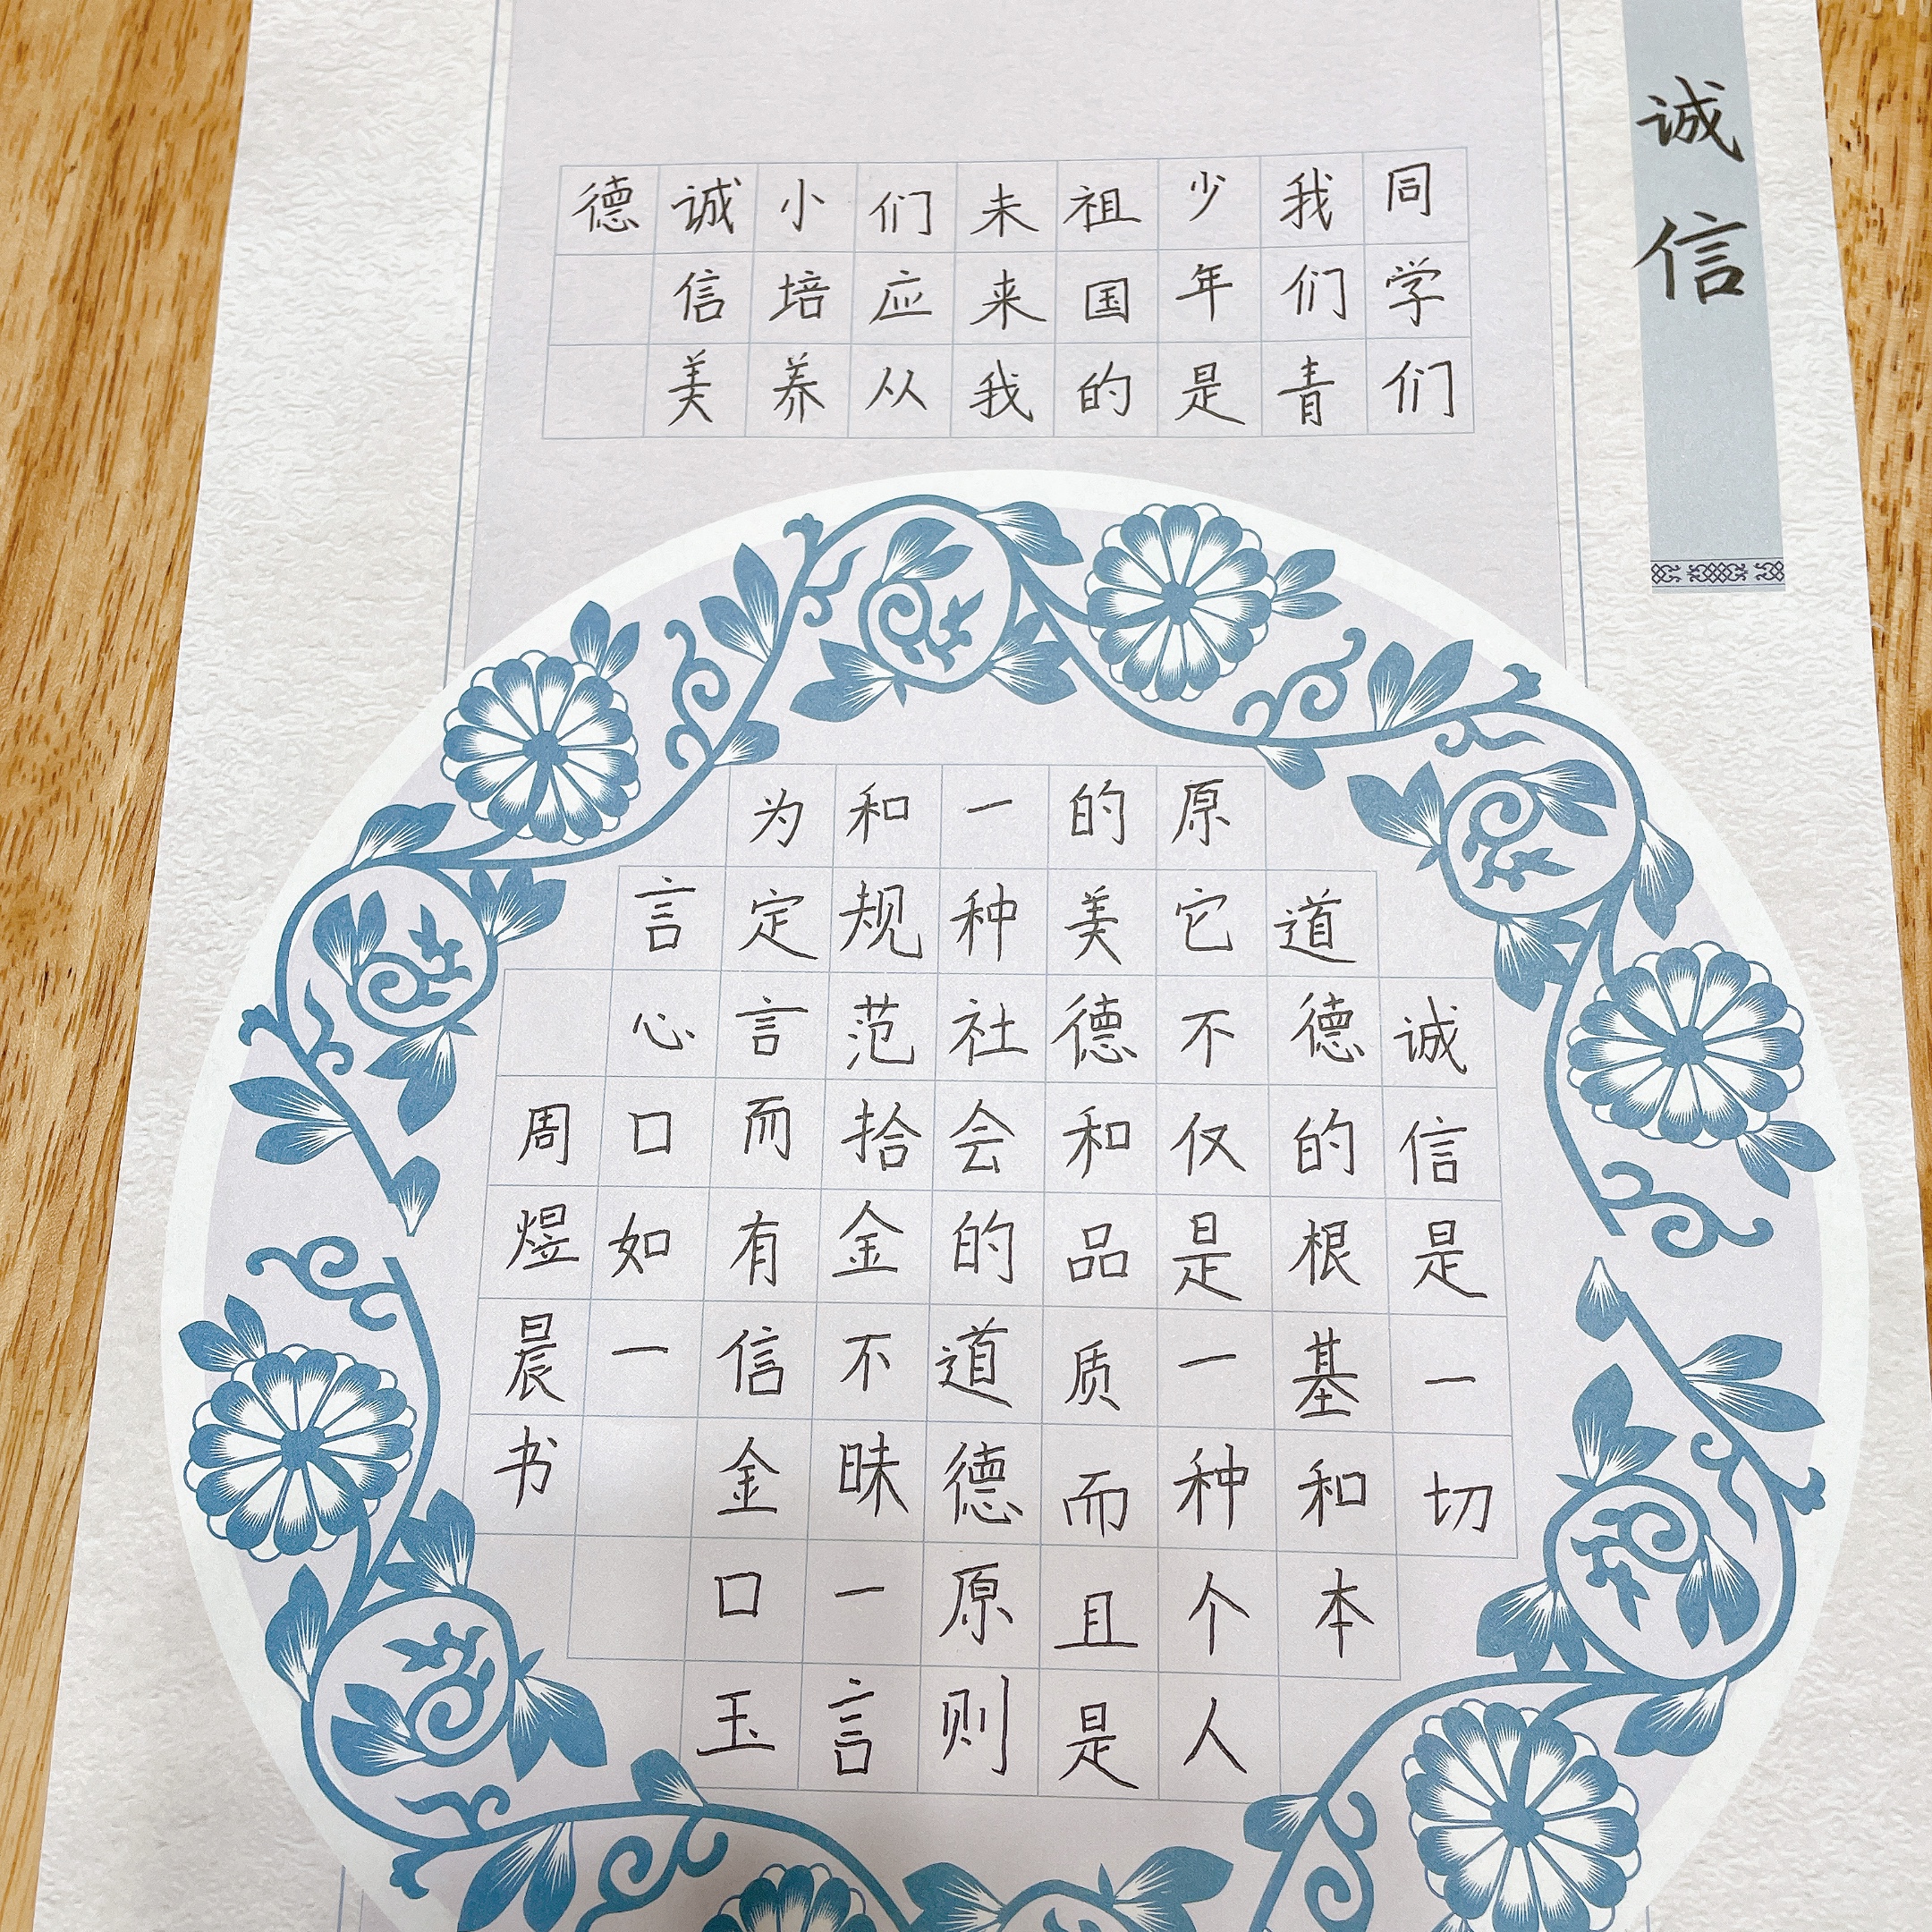 诚信
同学们
我们青
少年是
祖国的
未来我
们应从
小培养
诚信美
德
诚信是一切
道德的根基和本
原它不仅是一种个人
的美德和品质而且是
一种社会的道德原则
和规范拾金不昧一言
为定言而有信金口玉
言心口如一
周煜晨书